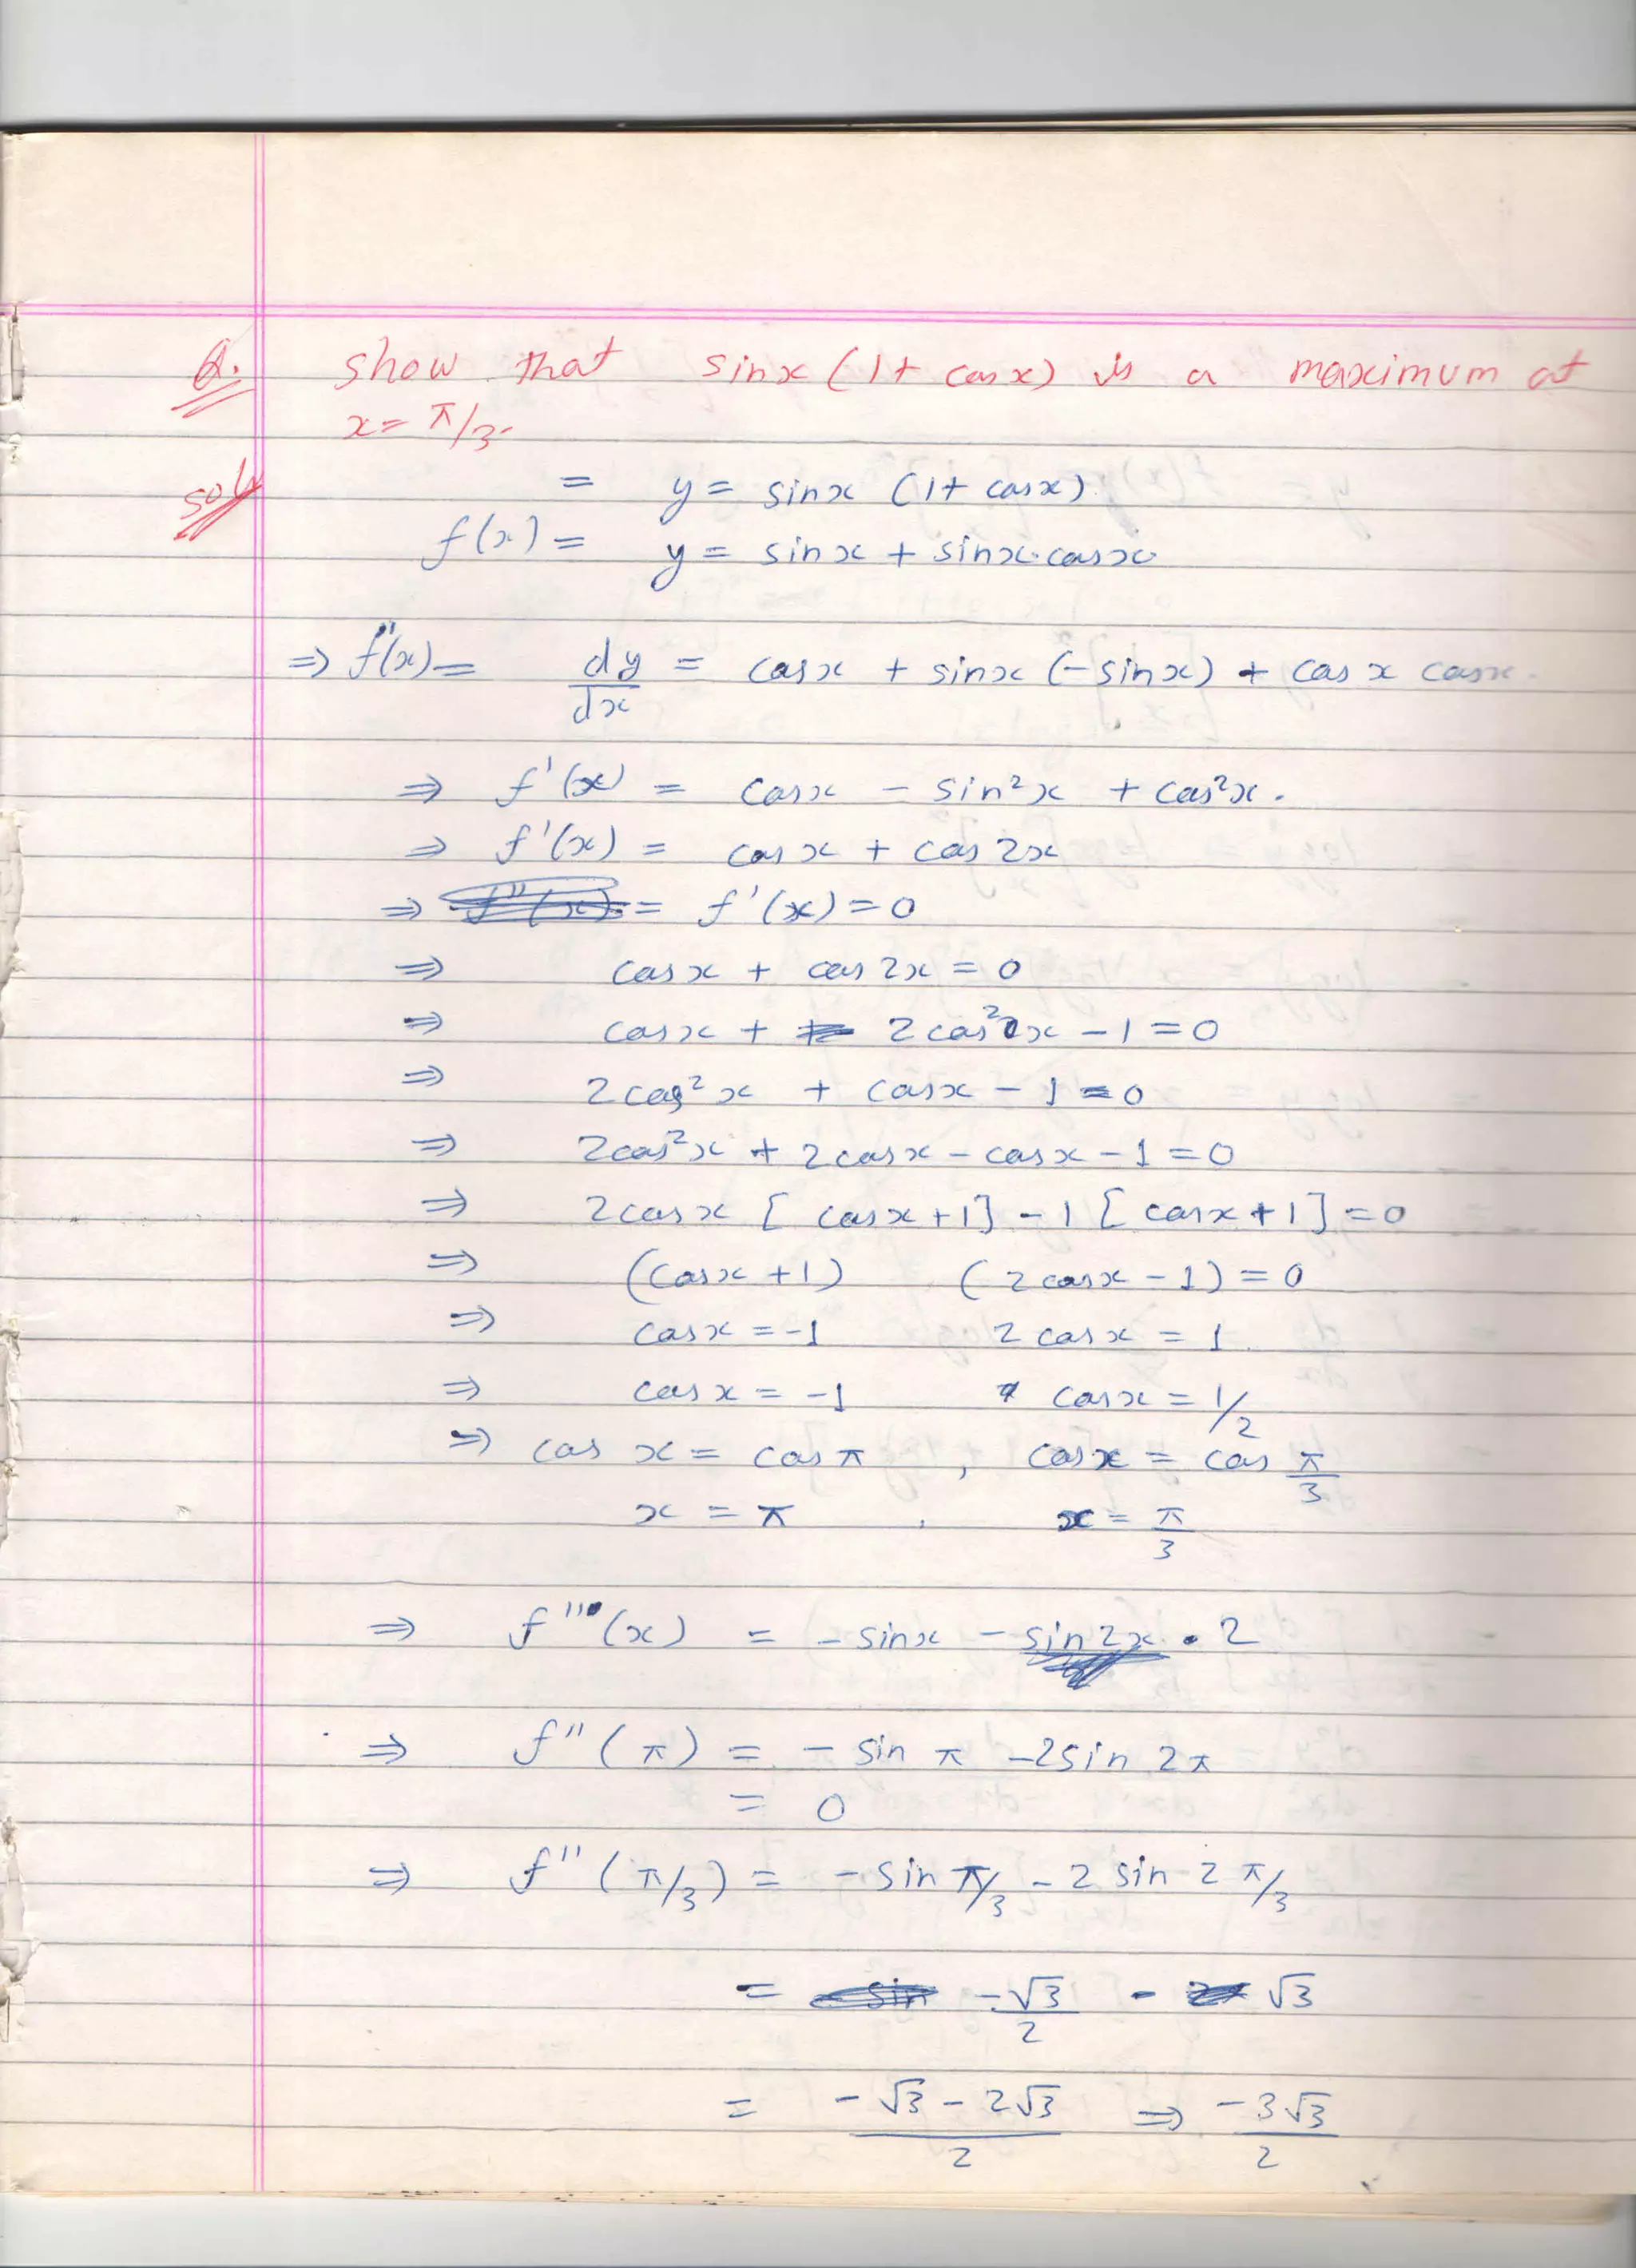 Q. Show that sinx (1+ cosx) is a maximum at
x= π/3.
Soln = y = sinx (1+ cosx)
f(x) = y = sinx + sinx.cosx
⇒ f'(x) = dy/dx = cosx + sinx (-sinx) + cosx cosx.
⇒ f'(x) = cosx - sin²x + cos²x.
⇒ f'(x) = cosx + cos2x
⇒ = f'(x) = 0
⇒ cosx + cos2x = 0
⇒ cosx + 2cos²x - 1 = 0
⇒ 2cos²x + cosx - 1 = 0
⇒ 2cos²x + 2cosx - cosx - 1 = 0
⇒ 2cosx [cosx+1] - 1 [cosx+1] = 0
⇒ (cosx +1) (2cosx - 1) = 0
⇒ cosx = -1 2cosx = 1
⇒ cosx = -1 cosx = 1/2
⇒ cos x = cosπ , cosx = cos π/3
x = π , x = π/3
⇒ f''(x) = -sinx - sin2x . 2
⇒ f''(π) = - sin π -2sin 2π
= 0
⇒ f''(π/3) = -sin π/3 - 2 sin 2 π/3
= -√3/2 - √3
= -√3 - 2√3/2 ⇒ -3√3/2